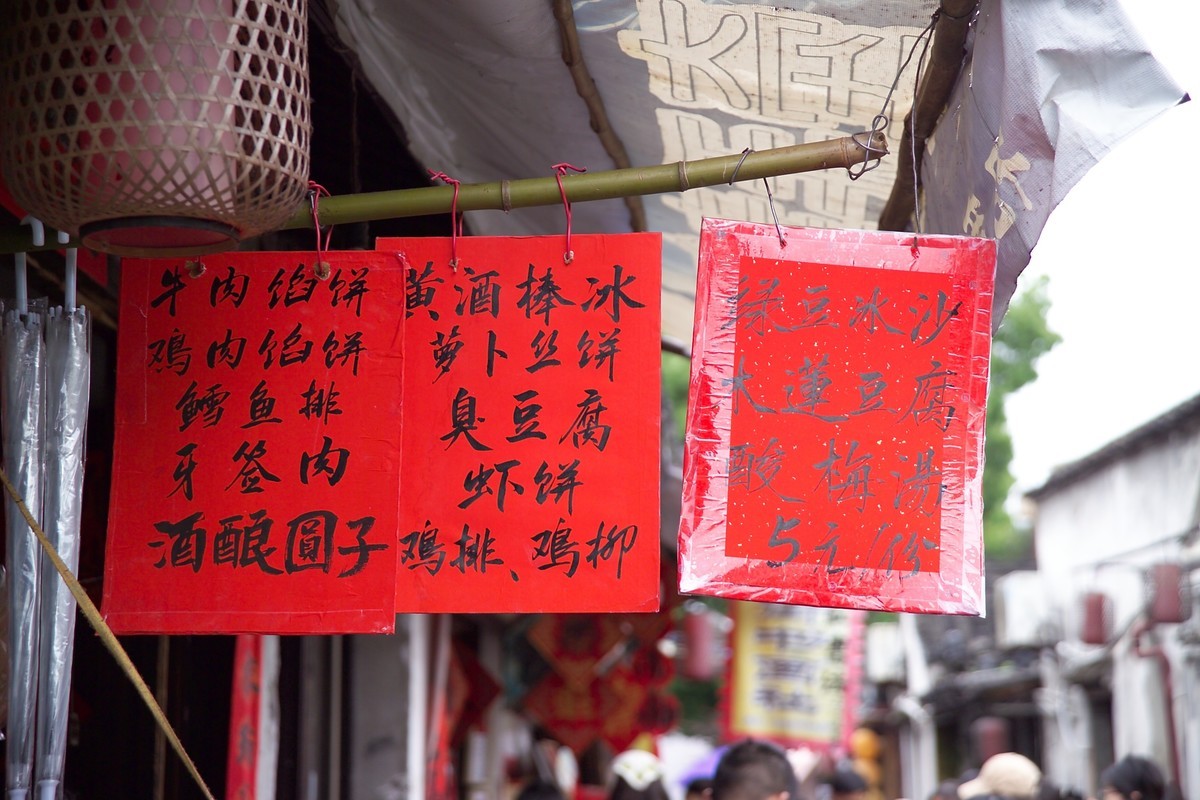 牛肉馅饼
鸡肉馅饼
鳕鱼排
牙签肉
酒酿圓子
黄酒棒冰
萝卜丝饼
臭豆腐
虾饼
鸡排、鸡柳
绿豆冰沙
木蓮豆腐
酸梅湯
5元/份